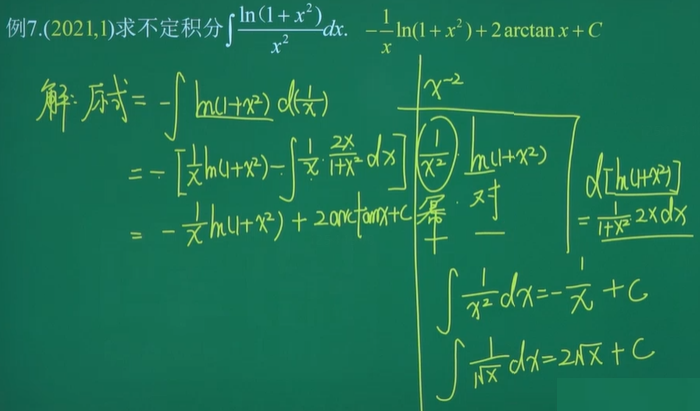 例7.(2021,1)求不定积分∫ln(1+x²)/x² dx. -1/x ln(1+x²)+2arctan x+C
解:原式=-∫ln(1+x²)d(1/x)
=-[1/x ln(1+x²)-∫1/x·2x/(1+x²)dx]
=-1/x ln(1+x²)+2arctanx+C
x⁻²
1/x²·ln(1+x²)
幂·对
+ —
d[ln(1+x²)]
=1/(1+x²)·2xdx
∫1/x² dx=-1/x+C
∫1/√x dx=2√x+C